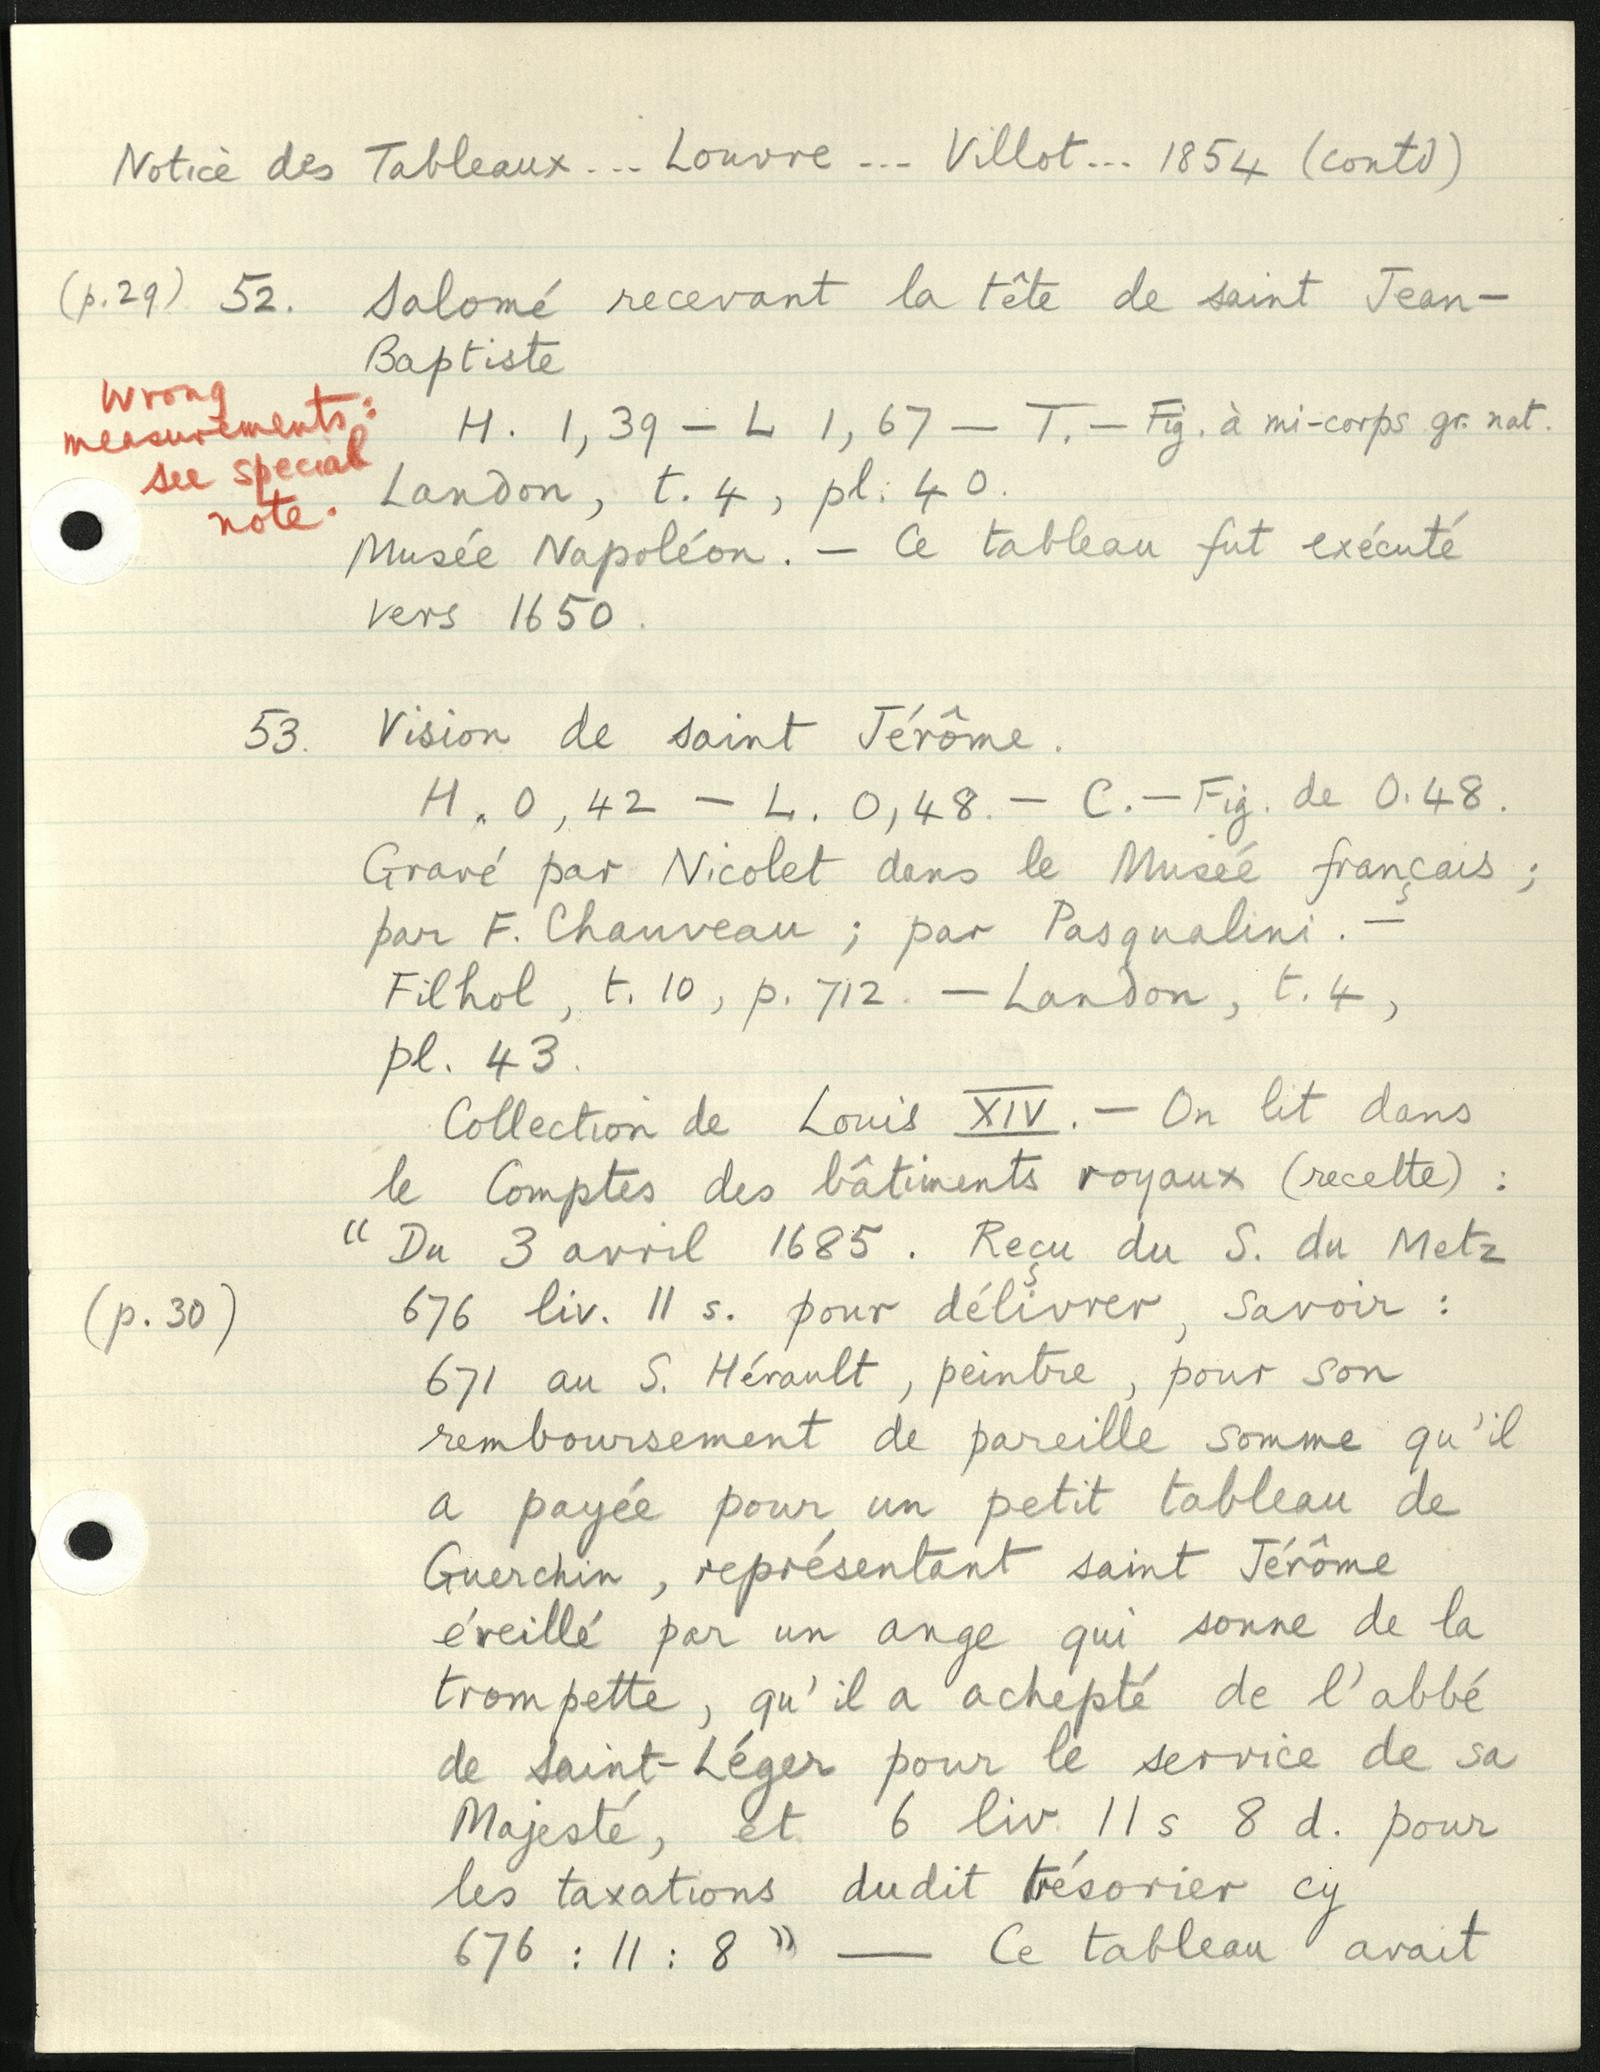 Notice des Tableaux... Louvre --- Villot... 1854 (contd)
(p.29) 52. Salomé recevant la tête de saint Jean-
Baptiste
Wrong
measurements:
see special
note.
H. 1,39 – L 1,67 – T. – Fig. à mi-corps gr. nat.
Landon, t. 4, pl. 40.
Musée Napoléon. – Ce tableau fut exécuté
vers 1650.
53. Vision de saint Jérôme.
H. 0,42 – L. 0,48. – C. – Fig. de 0.48.
Gravé par Nicolet dans le Musée français;
par F. Chauveau; par Pasqualini. –
Filhol, t. 10, p. 712. – Landon, t. 4,
pl. 43.
Collection de Louis XIV. – On lit dans
le Comptes des bâtiments royaux (recette):
"Du 3 avril 1685. Reçu du S. du Metz
(p. 30) 676 liv. 11 s. pour délivrer, savoir:
671 au S. Hérault, peintre, pour son
remboursement de pareille somme qu'il
a payée pour un petit tableau de
Guerchin, représentant saint Jérôme
éveillé par un ange qui sonne de la
trompette, qu'il a achepté de l'abbé
de Saint-Léger pour le service de sa
Majesté, et 6 liv. 11 s 8 d. pour
les taxations dudit trésorier cy
676 : 11 : 8" — Ce tableau avait